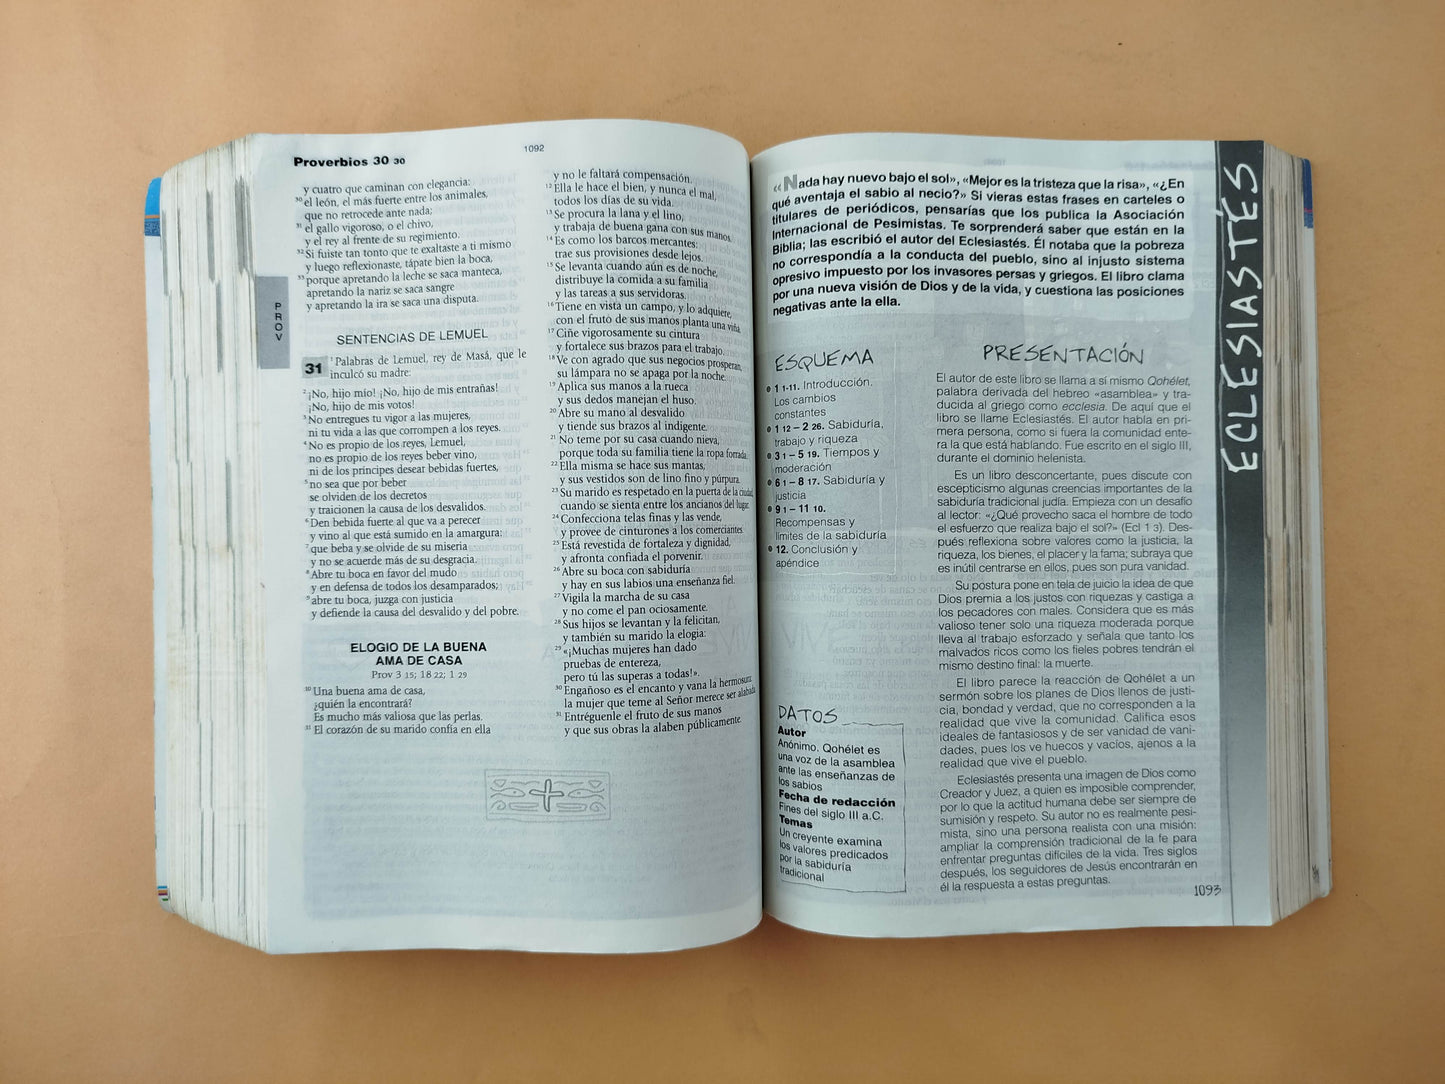 Proverbios 30 30
1092
y cuatro que caminan con elegancia:
30 el león, el más fuerte entre los animales,
que no retrocede ante nada;
31 el gallo vigoroso, o el chivo,
y el rey al frente de su regimiento.
32 Si fuiste tan tonto que te exaltaste a ti mismo
y luego reflexionaste, tápate bien la boca,
33 porque apretando la leche se saca manteca,
apretando la nariz se saca sangre
y apretando la ira se saca una disputa.
PROV
SENTENCIAS DE LEMUEL
31 1 Palabras de Lemuel, rey de Masá, que le
inculcó su madre:
2 ¡No, hijo mío! ¡No, hijo de mis entrañas!
¡No, hijo de mis votos!
3 No entregues tu vigor a las mujeres,
ni tu vida a las que corrompen a los reyes.
4 No es propio de los reyes, Lemuel,
no es propio de los reyes beber vino,
ni de los príncipes desear bebidas fuertes,
5 no sea que por beber
se olviden de los decretos
y traicionen la causa de los desvalidos.
6 Den bebida fuerte al que va a perecer
y vino al que está sumido en la amargura:
7 que beba y se olvide de su miseria
y no se acuerde más de su desgracia.
8 Abre tu boca en favor del mudo
y en defensa de todos los desamparados;
9 abre tu boca, juzga con justicia
y defiende la causa del desvalido y del pobre.
ELOGIO DE LA BUENA
AMA DE CASA
Prov 3 15; 18 22; 1 29
10 Una buena ama de casa,
¿quién la encontrará?
Es mucho más valiosa que las perlas.
11 El corazón de su marido confía en ella
y no le faltará compensación.
12 Ella le hace el bien, y nunca el mal,
todos los días de su vida.
13 Se procura la lana y el lino,
y trabaja de buena gana con sus manos.
14 Es como los barcos mercantes:
trae sus provisiones desde lejos.
15 Se levanta cuando aún es de noche,
distribuye la comida a su familia
y las tareas a sus servidoras.
16 Tiene en vista un campo, y lo adquiere,
con el fruto de sus manos planta una viña.
17 Ciñe vigorosamente su cintura
y fortalece sus brazos para el trabajo.
18 Ve con agrado que sus negocios prosperan,
su lámpara no se apaga por la noche.
19 Aplica sus manos a la rueca
y sus dedos manejan el huso.
20 Abre su mano al desvalido
y tiende sus brazos al indigente.
21 No teme por su casa cuando nieva,
porque toda su familia tiene la ropa forrada.
22 Ella misma se hace sus mantas,
y sus vestidos son de lino fino y púrpura.
23 Su marido es respetado en la puerta de la ciudad,
cuando se sienta entre los ancianos del lugar.
24 Confecciona telas finas y las vende,
y provee de cinturones a los comerciantes.
25 Está revestida de fortaleza y dignidad,
y afronta confiada el porvenir.
26 Abre su boca con sabiduría
y hay en sus labios una enseñanza fiel.
27 Vigila la marcha de su casa
y no come el pan ociosamente.
28 Sus hijos se levantan y la felicitan,
y también su marido la elogia:
29 «¡Muchas mujeres han dado
pruebas de entereza,
pero tú las superas a todas!».
30 Engañoso es el encanto y vana la hermosura:
la mujer que teme al Señor merece ser alabada.
31 Entréguenle el fruto de sus manos
y que sus obras la alaben públicamente.
«Nada hay nuevo bajo el sol», «Mejor es la tristeza que la risa», «¿En
qué aventaja el sabio al necio?» Si vieras estas frases en carteles o
titulares de periódicos, pensarías que los publica la Asociación
Internacional de Pesimistas. Te sorprenderá saber que están en la
Biblia; las escribió el autor del Eclesiastés. Él notaba que la pobreza
no correspondía a la conducta del pueblo, sino al injusto sistema
opresivo impuesto por los invasores persas y griegos. El libro clama
por una nueva visión de Dios y de la vida, y cuestiona las posiciones
negativas ante la ella.
ECLESIASTÉS
ESQUEMA
● 1 1-11. Introducción.
Los cambios
constantes
● 1 12 – 2 26. Sabiduría,
trabajo y riqueza
● 3 1 – 5 19. Tiempos y
moderación
● 6 1 – 8 17. Sabiduría y
justicia
● 9 1 – 11 10.
Recompensas y
límites de la sabiduría
● 12. Conclusión y
apéndice
DATOS
Autor
Anónimo. Qohélet es
una voz de la asamblea
ante las enseñanzas de
los sabios
Fecha de redacción
Fines del siglo III a.C.
Temas
Un creyente examina
los valores predicados
por la sabiduría
tradicional
PRESENTACIÓN
El autor de este libro se llama a sí mismo Qohélet,
palabra derivada del hebreo «asamblea» y tra-
ducida al griego como ecclesia. De aquí que el
libro se llame Eclesiastés. El autor habla en pri-
mera persona, como si fuera la comunidad ente-
ra la que está hablando. Fue escrito en el siglo III,
durante el dominio helenista.
Es un libro desconcertante, pues discute con
escepticismo algunas creencias importantes de la
sabiduría tradicional judía. Empieza con un desafío
al lector: «¿Qué provecho saca el hombre de todo
el esfuerzo que realiza bajo el sol?» (Ecl 1 3). Des-
pués reflexiona sobre valores como la justicia, la
riqueza, los bienes, el placer y la fama; subraya que
es inútil centrarse en ellos, pues son pura vanidad.
Su postura pone en tela de juicio la idea de que
Dios premia a los justos con riquezas y castiga a
los pecadores con males. Considera que es más
valioso tener solo una riqueza moderada porque
lleva al trabajo esforzado y señala que tanto los
malvados ricos como los fieles pobres tendrán el
mismo destino final: la muerte.
El libro parece la reacción de Qohélet a un
sermón sobre los planes de Dios llenos de justi-
cia, bondad y verdad, que no corresponden a la
realidad que vive la comunidad. Califica esos
ideales de fantasiosos y de ser vanidad de vani-
dades, pues los ve huecos y vacíos, ajenos a la
realidad que vive el pueblo.
Eclesiastés presenta una imagen de Dios como
Creador y Juez, a quien es imposible comprender,
por lo que la actitud humana debe ser siempre de
sumisión y respeto. Su autor no es realmente pesi-
mista, sino una persona realista con una misión:
ampliar la comprensión tradicional de la fe para
enfrentar preguntas difíciles de la vida. Tres siglos
después, los seguidores de Jesús encontrarán en
él la respuesta a estas preguntas.
1093